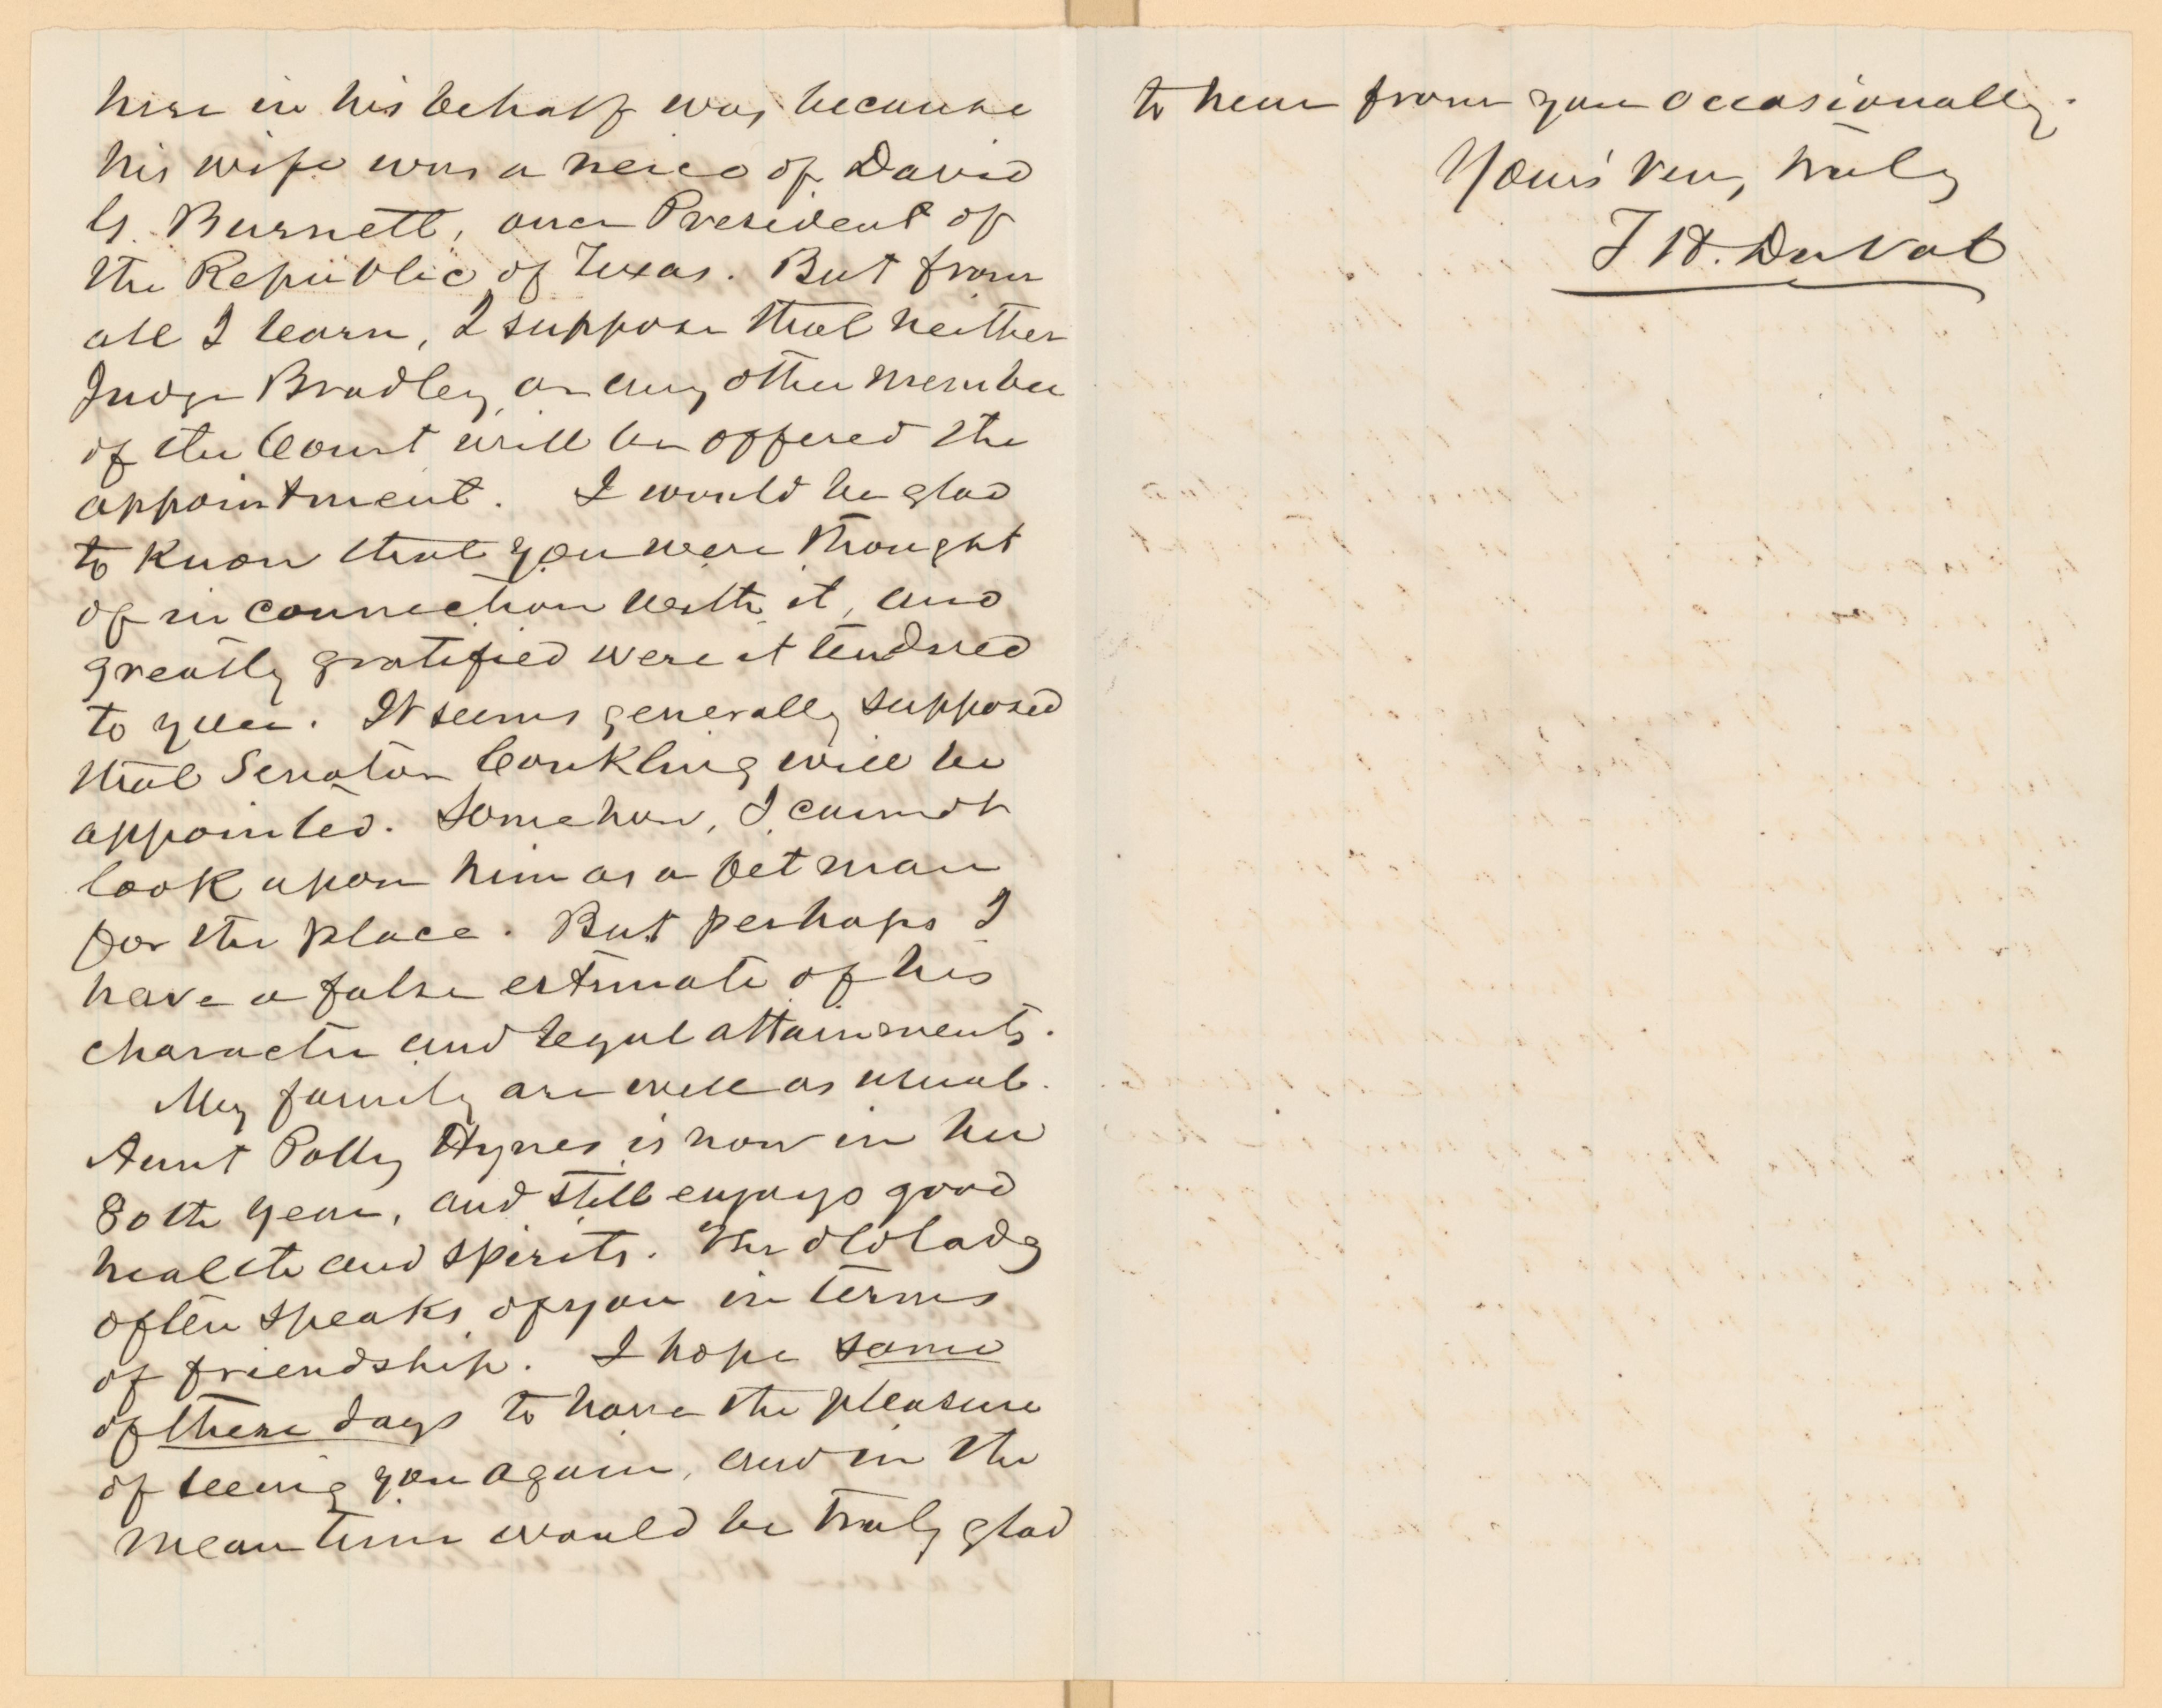 here in his behalf was, because
his wife was a neice of David
G. Burnett, once President of
the Republic of Texas. But from
all I learn, I suppose that neither
Judge Bradley, or any other member
of the Court will be offered the
appointment. I would be glad
to know that you were thought
of in connection with it, and
greatly gratified were it tendered
to you. It seems generally supposed
that Senator Conkling will be
appointed. Somehow, I cannot
look upon him as a fet man
for the place. But perhaps I
have a false estimate of his
character and legal attainments.
My family are well as usual.
Aunt Polly Hynes is now in her
80th year, and still enjoys good
health and spirits. The old lady
often speaks of you in terms
of friendship. I hope some
of these days to have the pleasure
of seeing you again, and in the
mean time would be truly glad
to hear from you occasionally.
Yours very truly
T H. DuVal